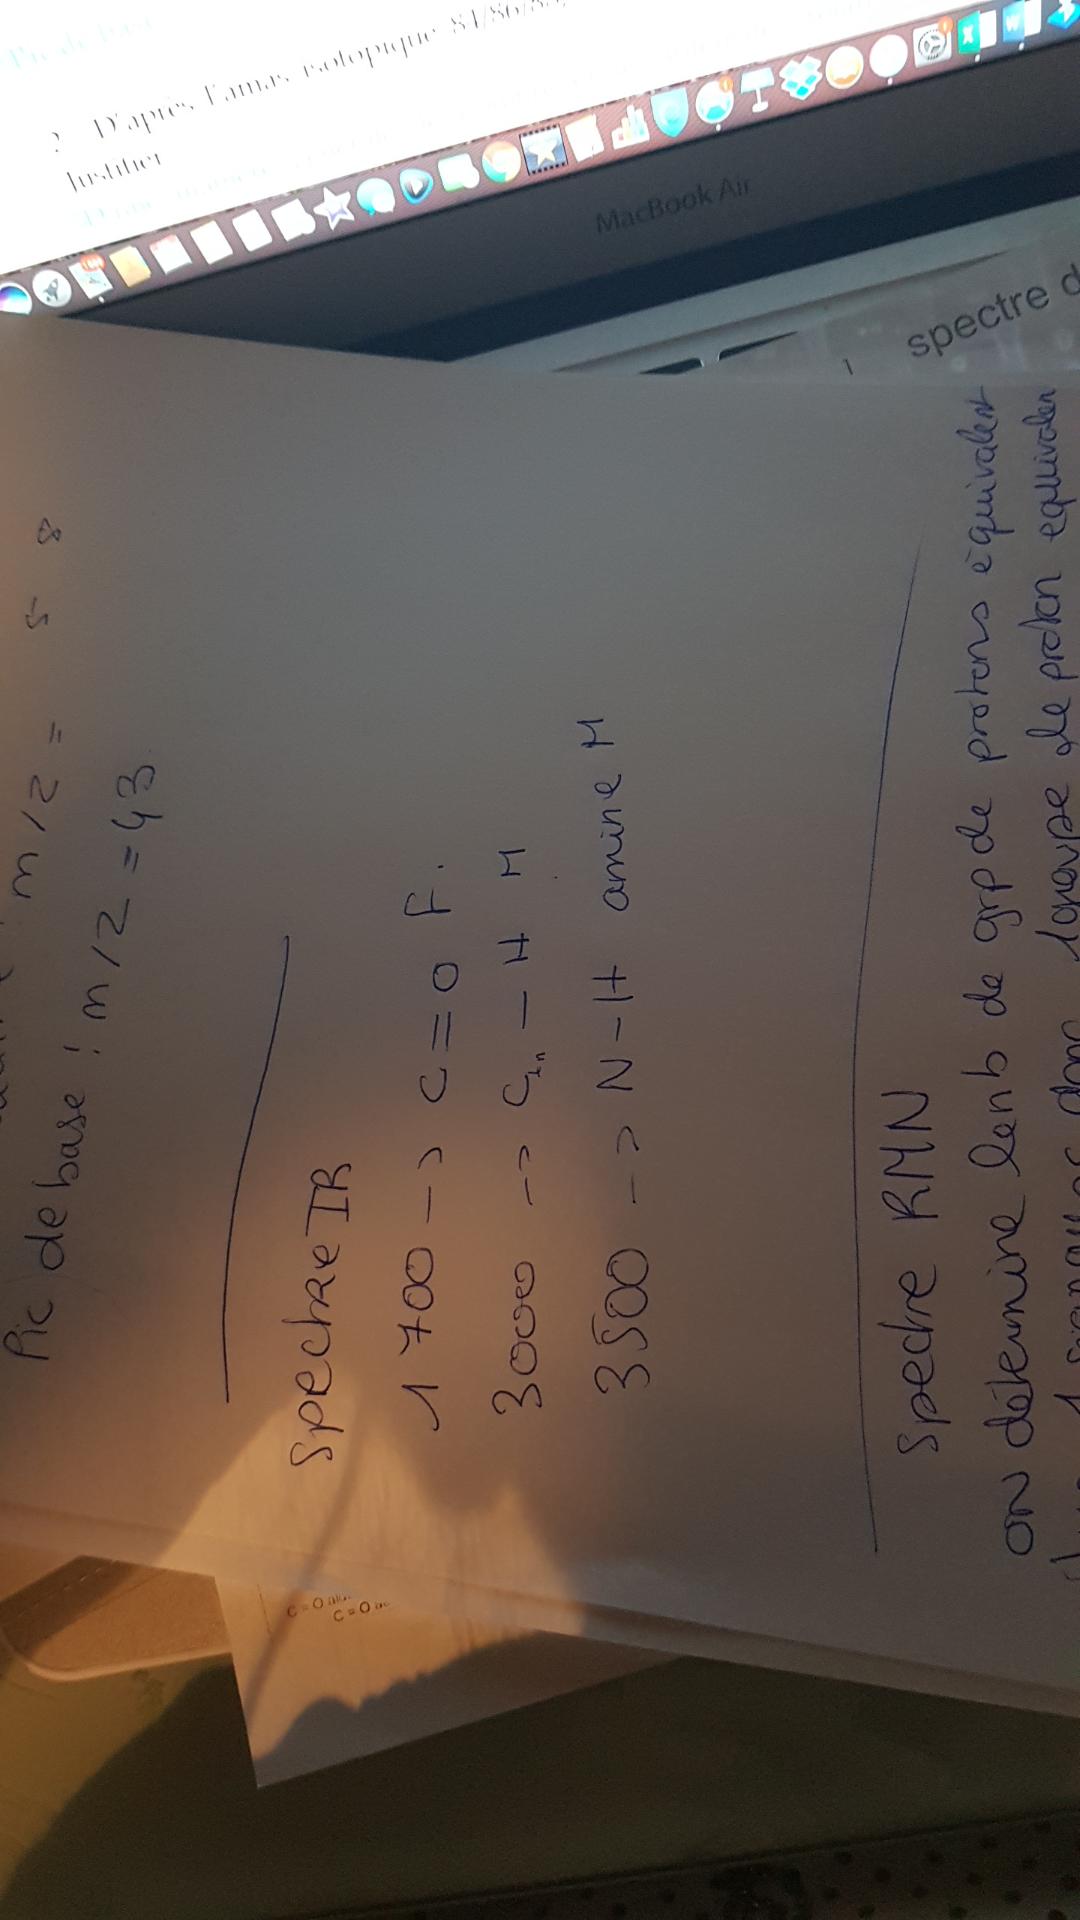 2 D'après l'amas isotopique 84/86/88,
Justifier
MacBook Air
spectre d
m/z = 58
Pic de base : m/z = 43
Spectre IR
1700 -> C=O F.
3000 -> C - H M
3500 -> N-H amine M
Spectre RMN
on détermine le nb de grp de protons équivalent
donc 1 groupe de proton equivalen
C=O
C=O